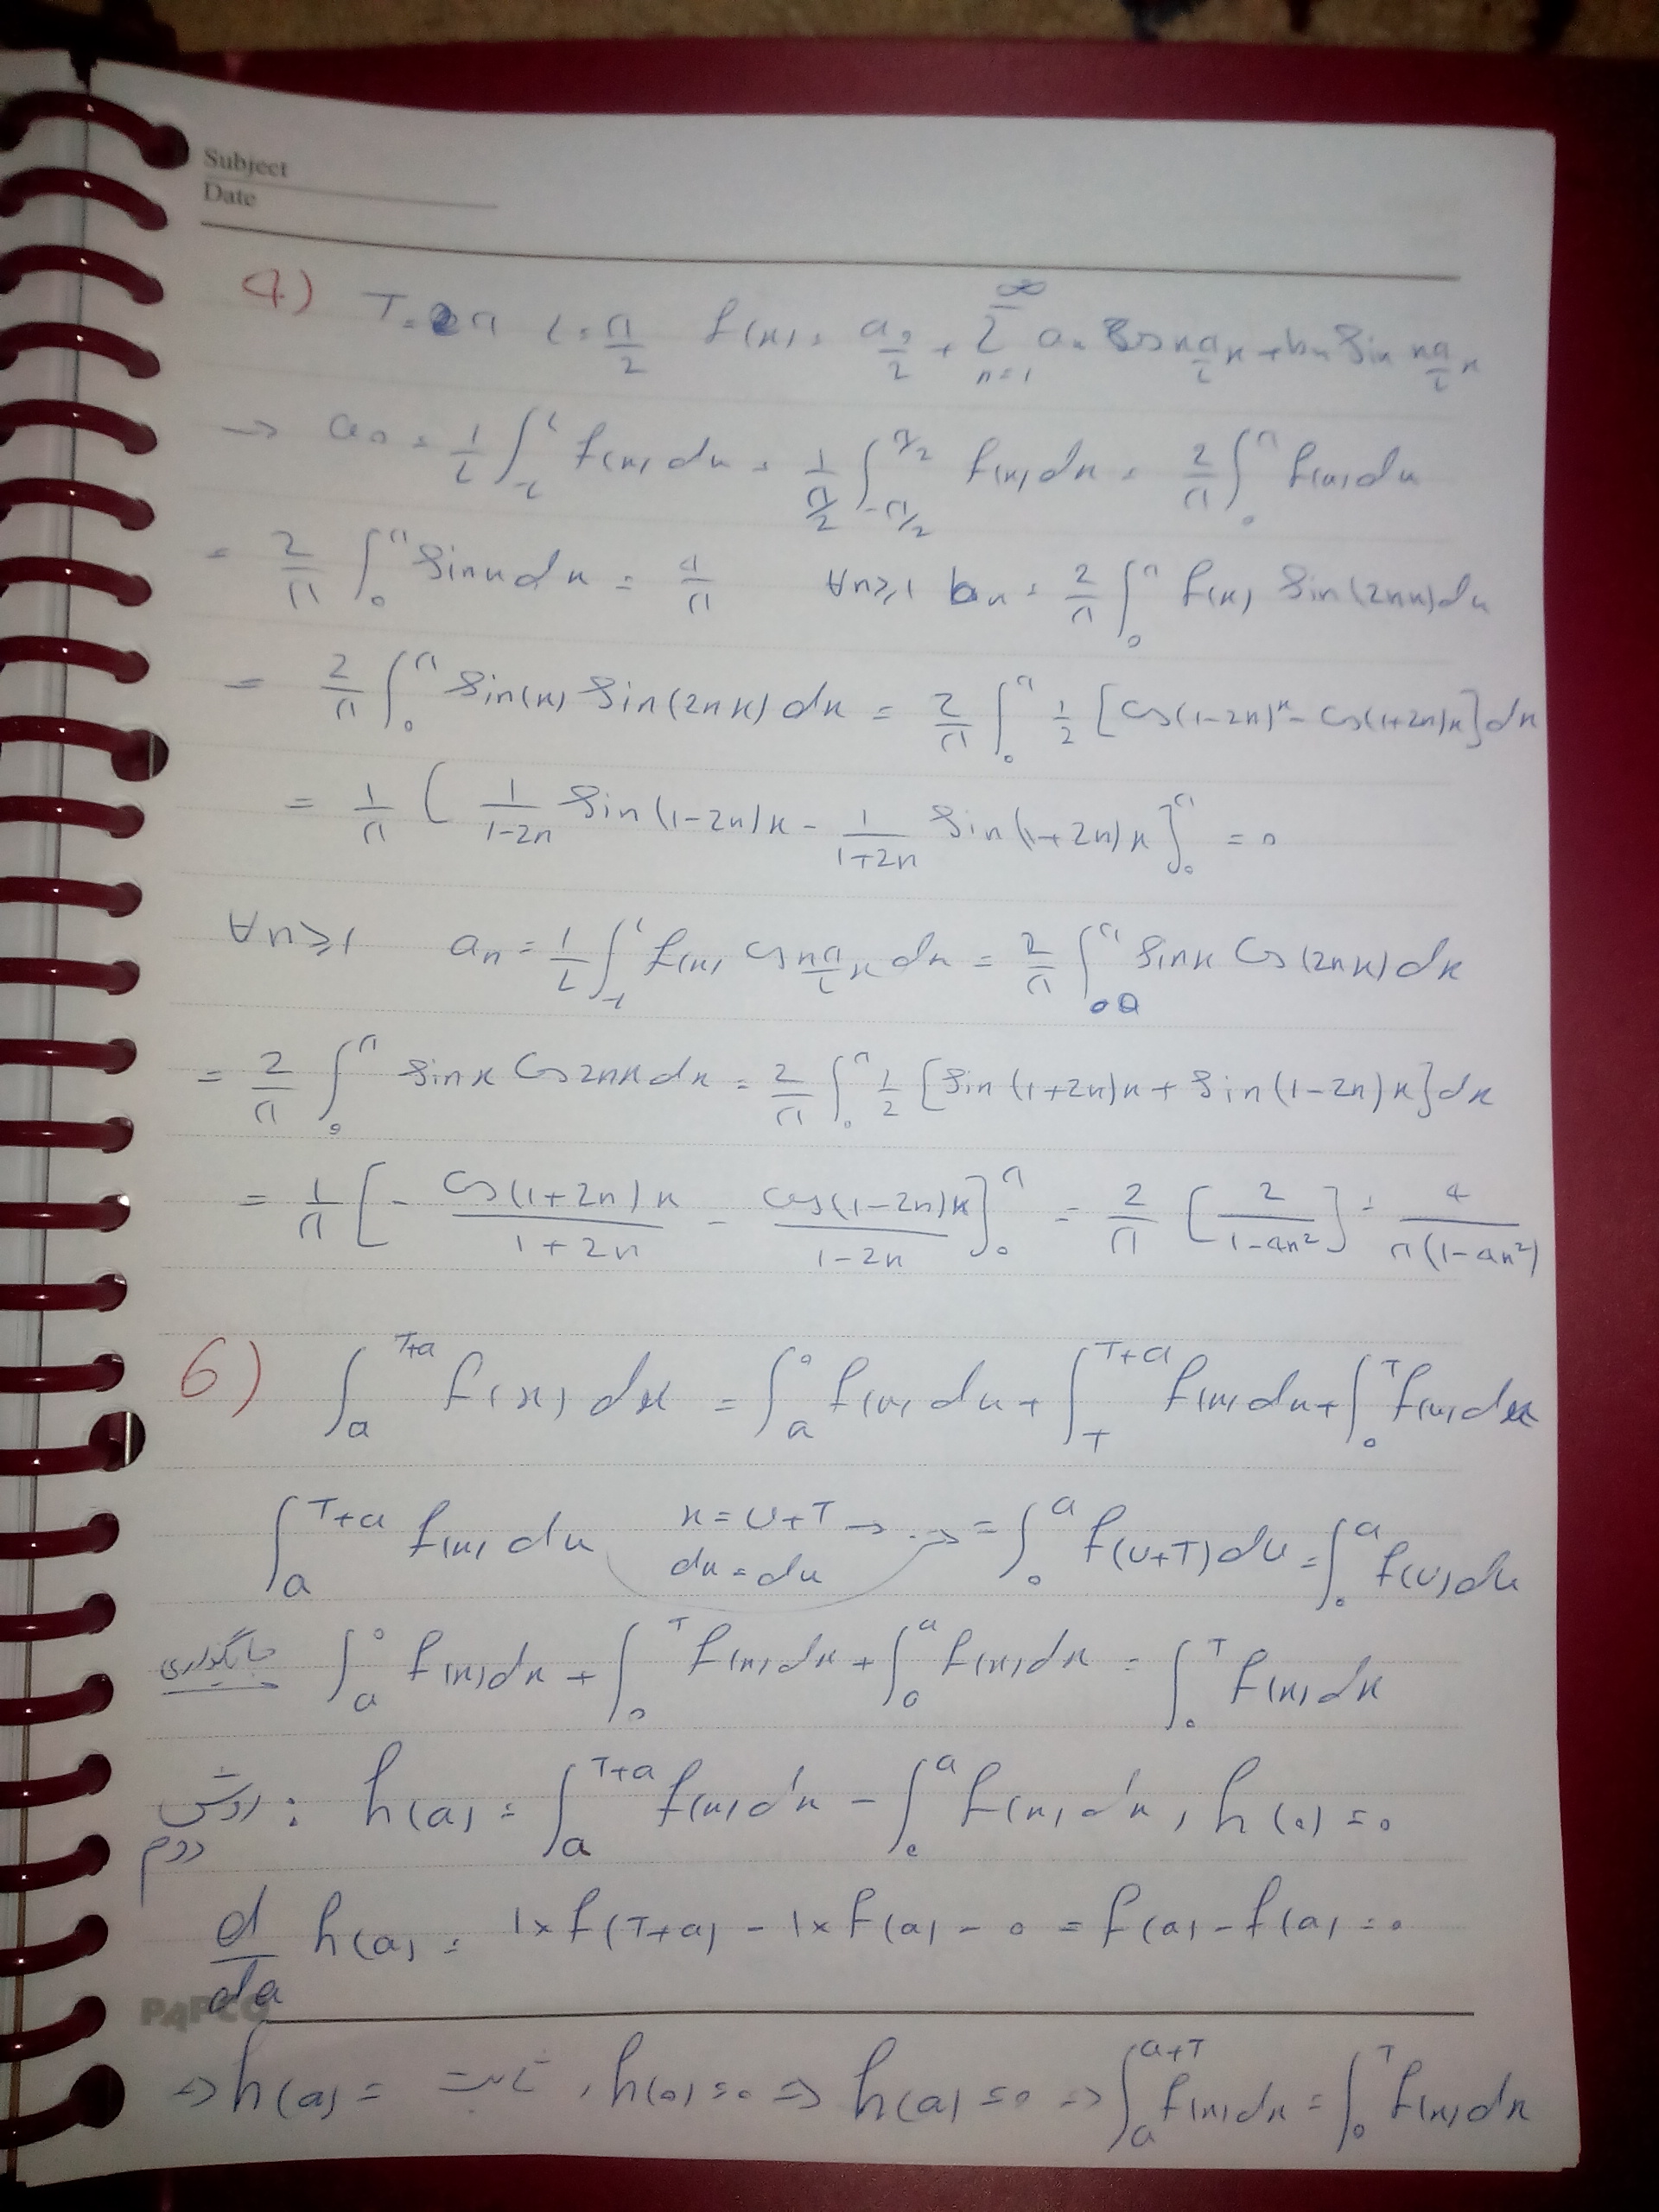 Subject
Date
4) T=π l=π/2 f(x)= a₀/2 + ∑_{n=1}^{∞} aₙ Cos nπ/l x + bₙ Sin nπ/l x
→ a₀ = 1/l ∫_{-l}^{l} f(x) dx = 1/(π/2) ∫_{-π/2}^{π/2} f(x) dx = 2/π ∫_0^π f(x) dx
= 2/π ∫_0^π Sinx dx = 4/π ∀n≥1 bₙ = 2/π ∫_0^π f(x) Sin(2nx) dx
= 2/π ∫_0^π Sin(x) Sin(2nx) dx = 2/π ∫_0^π 1/2 [Cos(1-2n)x - Cos(1+2n)x] dx
= 1/π ( 1/(1-2n) Sin(1-2n)x - 1/(1+2n) Sin(1+2n)x ]_0^π = 0
∀n≥1 aₙ = 1/l ∫_{-l}^{l} f(x) Cos nπ/l x dx = 2/π ∫_0^π Sinx Cos(2nx) dx
= 2/π ∫_0^π Sinx Cos2nx dx = 2/π ∫_0^π 1/2 [Sin(1+2n)x + Sin(1-2n)x] dx
= 1/π [ - Cos(1+2n)x/(1+2n) - Cos(1-2n)x/(1-2n) ]_0^π = 2/π [ 2/(1-4n²) ] = 4/(π(1-4n²))
6) ∫_a^{T+a} f(x) dx = ∫_a^0 f(x) dx + ∫_T^{T+a} f(x) dx + ∫_0^T f(x) dx
∫_a^{T+a} f(x) dx x=U+T → ⇒ = ∫_0^a f(U+T) dU = ∫_0^a f(U) du
dx=du
جایگذاری ∫_a^0 f(x) dx + ∫_0^T f(x) dx + ∫_0^a f(x) dx = ∫_0^T f(x) dx
روش دوم : h(a) = ∫_a^{T+a} f(x) dx - ∫_0^a f(x) dx , h(0)=0
d/da h(a) = 1×f(T+a) - 1×f(a) - 0 = f(a) - f(a) = 0
PAPCO
⇒ h(a) = ثابت , h(0)=0 ⇒ h(a)=0 ⇒ ∫_a^{a+T} f(x) dx = ∫_0^T f(x) dx